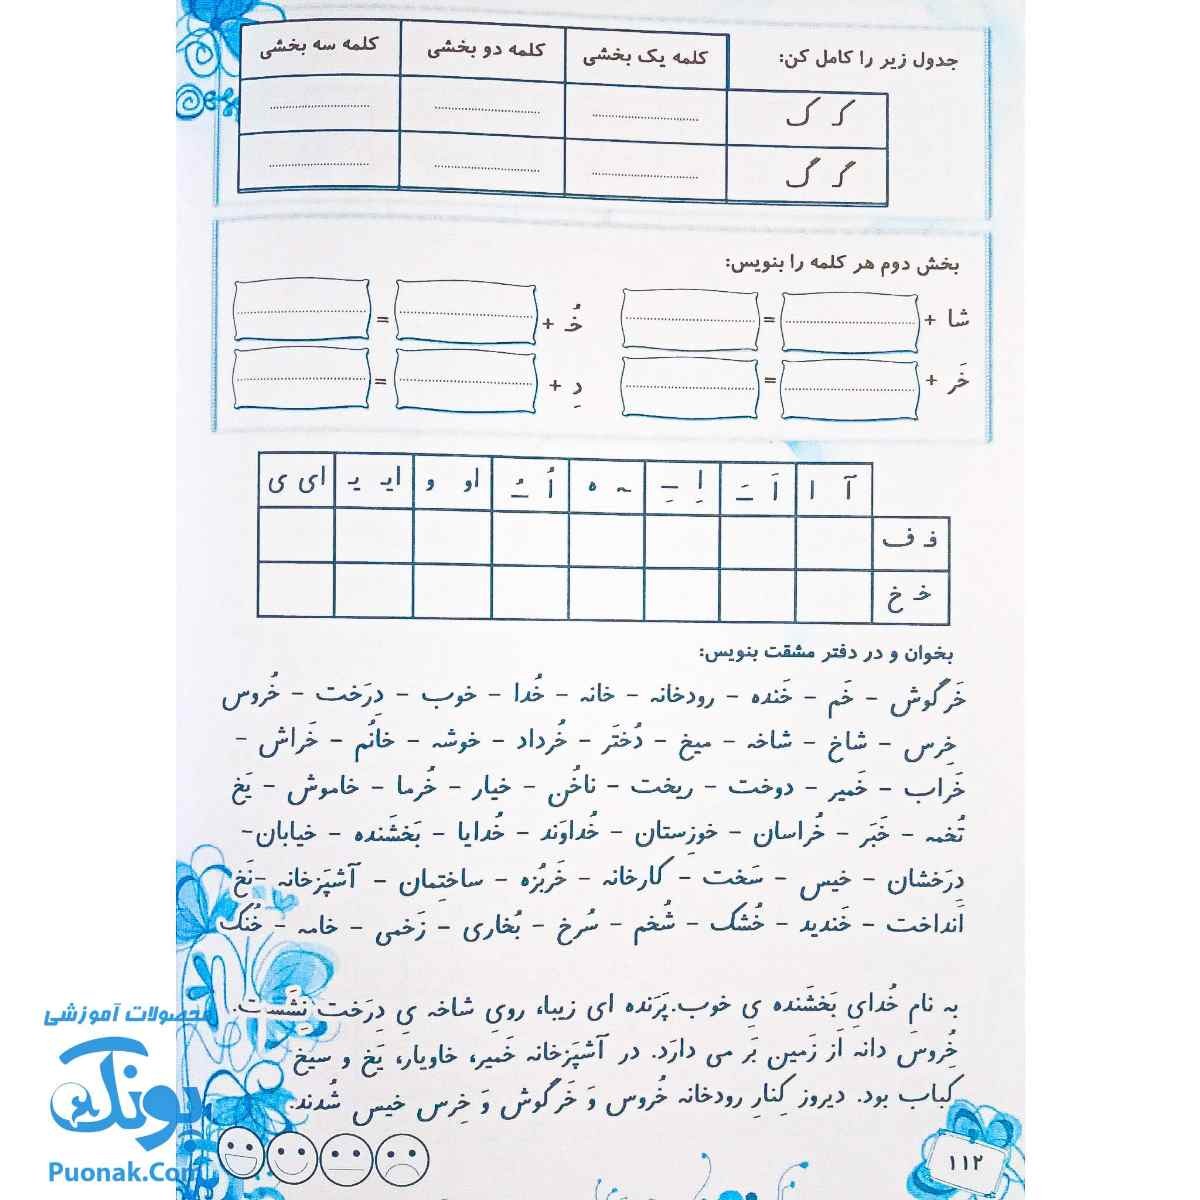 جدول زیر را کامل کن:
کلمه یک بخشی کلمه دو بخشی کلمه سه بخشی
کـ ک
گـ گ
بخش دوم هر کلمه را بنویس:
شا + = خُـ + =
خَر + = دِ + =
آ ا اَ ـَ اِ ـِ ـه ه اُ ـُ او و ایـ یـ ای ی
فـ ف
خـ خ
بخوان و در دفتر مشقت بنویس:
خَرگوش - خَم - خَنده - رودخانه - خانه - خُدا - خوب - دِرَخت - خُروس
خِرس - شاخ - شاخه - میخ - دُختَر - خُرداد - خوشه - خانُم - خَراش -
خَراب - خَمیر - دوخت - ریخت - ناخُن - خیار - خُرما - خاموش - یَخ
تُخمه - خَبَر - خُراسان - خوزِستان - خُداوَند - خُدایا - بَخشَنده - خیابان-
دِرَخشان - خیس - سَخت - کارخانه - خَربُزه - ساختِمان - آشپَزخانه -نَخ
اَنداخت - خَندید - خُشک - شُخم - سُرخ - بُخاری - زَخمی - خامه - خُنَک
به نامِ خُدایِ بَخشَنده یِ خوب.پَرَنده ای زیبا، رویِ شاخه یِ دِرَخت نِشَست.
خُروس دانه اَز زَمین بَر می دارَد. در آشپَزخانه خَمیر، خاویار، یَخ و سیخِ
کباب بود. دیروز کِنارِ رودخانه خُروس وَ خَرگوش وَ خِرس خیس شُدند.
محصولات آموزشی
پونک
Puonak.Com
۱۱۲